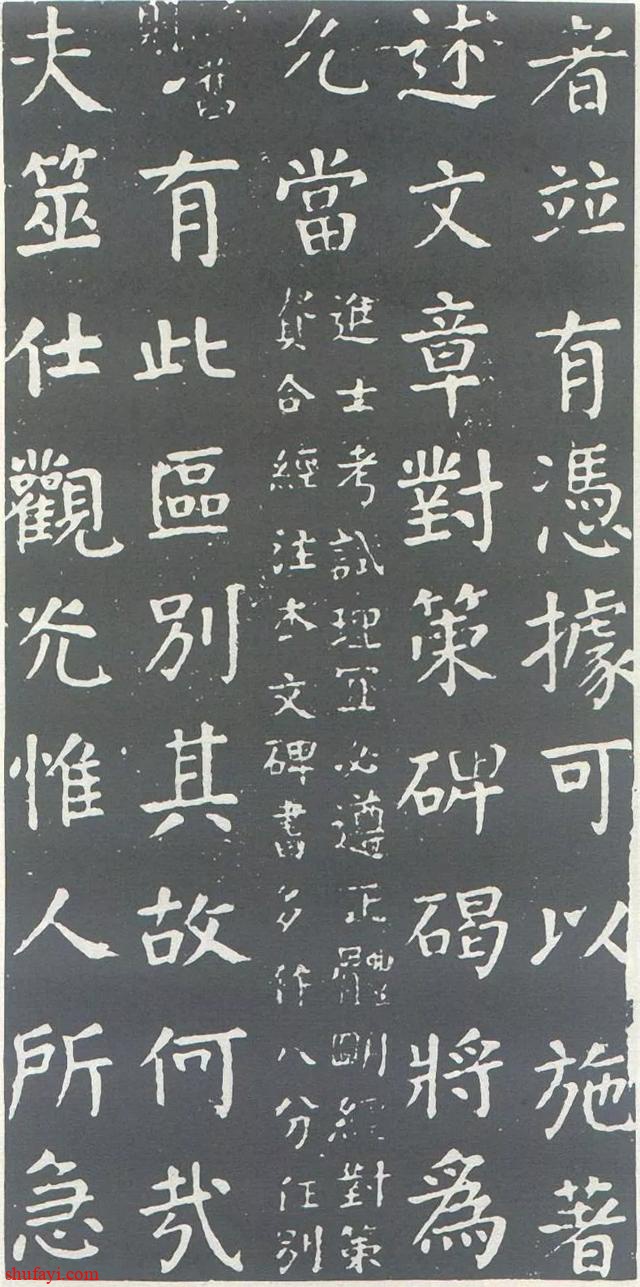 者竝有憑據可以施著
述文章對策碑碣將爲
允當
進士考試理冝必遵正體明經對策
貴合經注本文碑書多作八分任別
舊
則
有此區別其故何哉
夫筮仕觀光惟人所急
shufayi.com